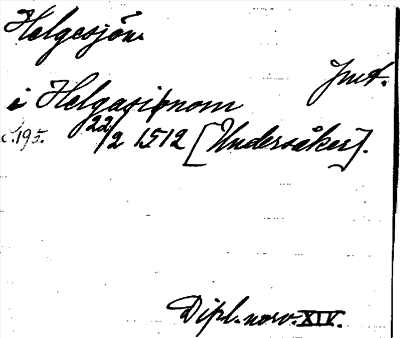 Helgesjön.
Jmt.
i Helgasiønom
s.195. 22/2 1512 [Undersåker].
Dipl. norv. XIV.